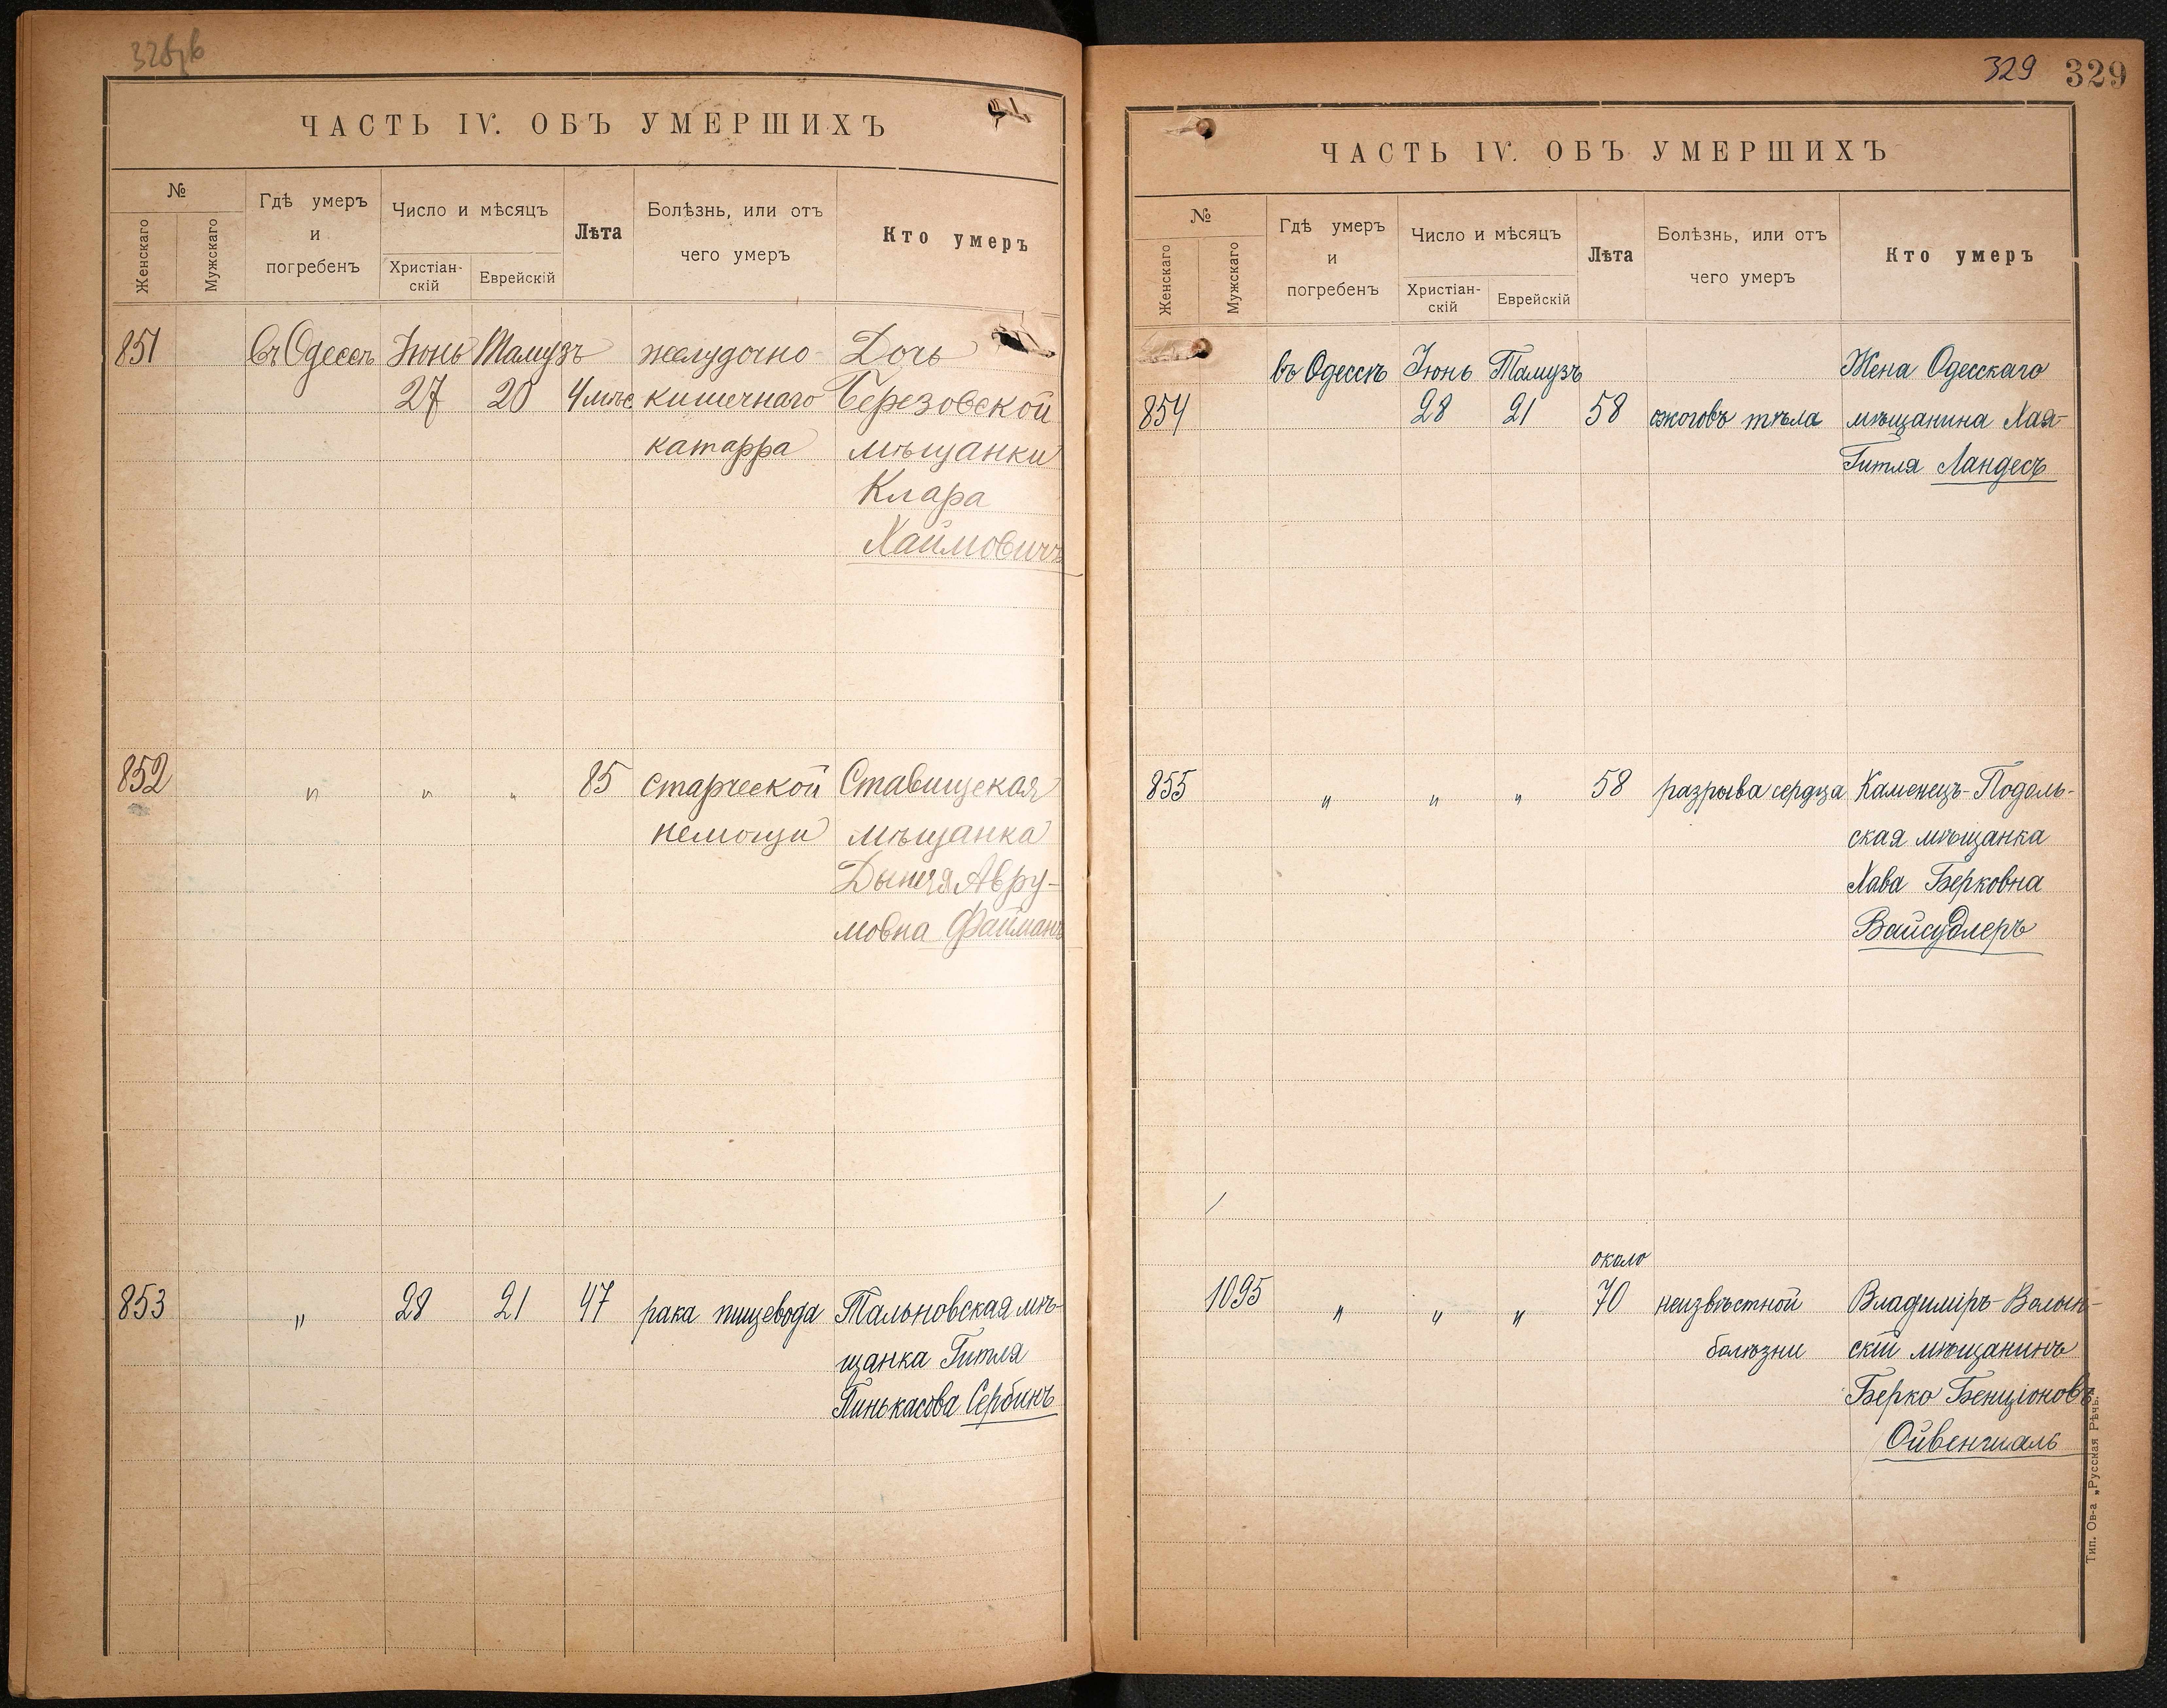 ЧАСТЬ IV. ОБЪ УМЕРШИХЪ
№
Женскаго
Мужскаго
Гдѣ умеръ
и
погребенъ
Число и мѣсяцъ
Христіан-
скій
Еврейскій
Лѣта
Болѣзнь, или отъ
чего умеръ
Кто умеръ
851 въ Одессѣ Іюнь Тамузъ желудочно- Дочь
27 20 4 мѣс кишечнаго Березовской
катарра мѣщанки
Клара
Хаймовичъ
852 " " " 85 старческой Ставищская
немощи мѣщанка
Дыня Авру-
мовна Файманъ
853 " 28 21 47 рака пищевода Тальновская мѣ-
щанка Гитля
Пинькасова Сербинъ
329 329
ЧАСТЬ IV. ОБЪ УМЕРШИХЪ
№
Женскаго
Мужскаго
Гдѣ умеръ
и
погребенъ
Число и мѣсяцъ
Христіан-
скій
Еврейскій
Лѣта
Болѣзнь, или отъ
чего умеръ
Кто умеръ
въ Одессѣ Іюнь Тамузъ Жена Одесскаго
854 28 21 58 ожоговъ тѣла мѣщанина Хая-
Гитля Ландесъ
855 " " " 58 разрыва сердца Каменецъ-Подоль-
ская мѣщанка
Хава Берковна
около
1095 " " " 70 неизвѣстной Владиміръ-Волын-
болѣзни скій мѣщанинъ
Берко Бенціоновъ
Ойвенталь
Тип. Ов-а „Русская Рѣчь.“